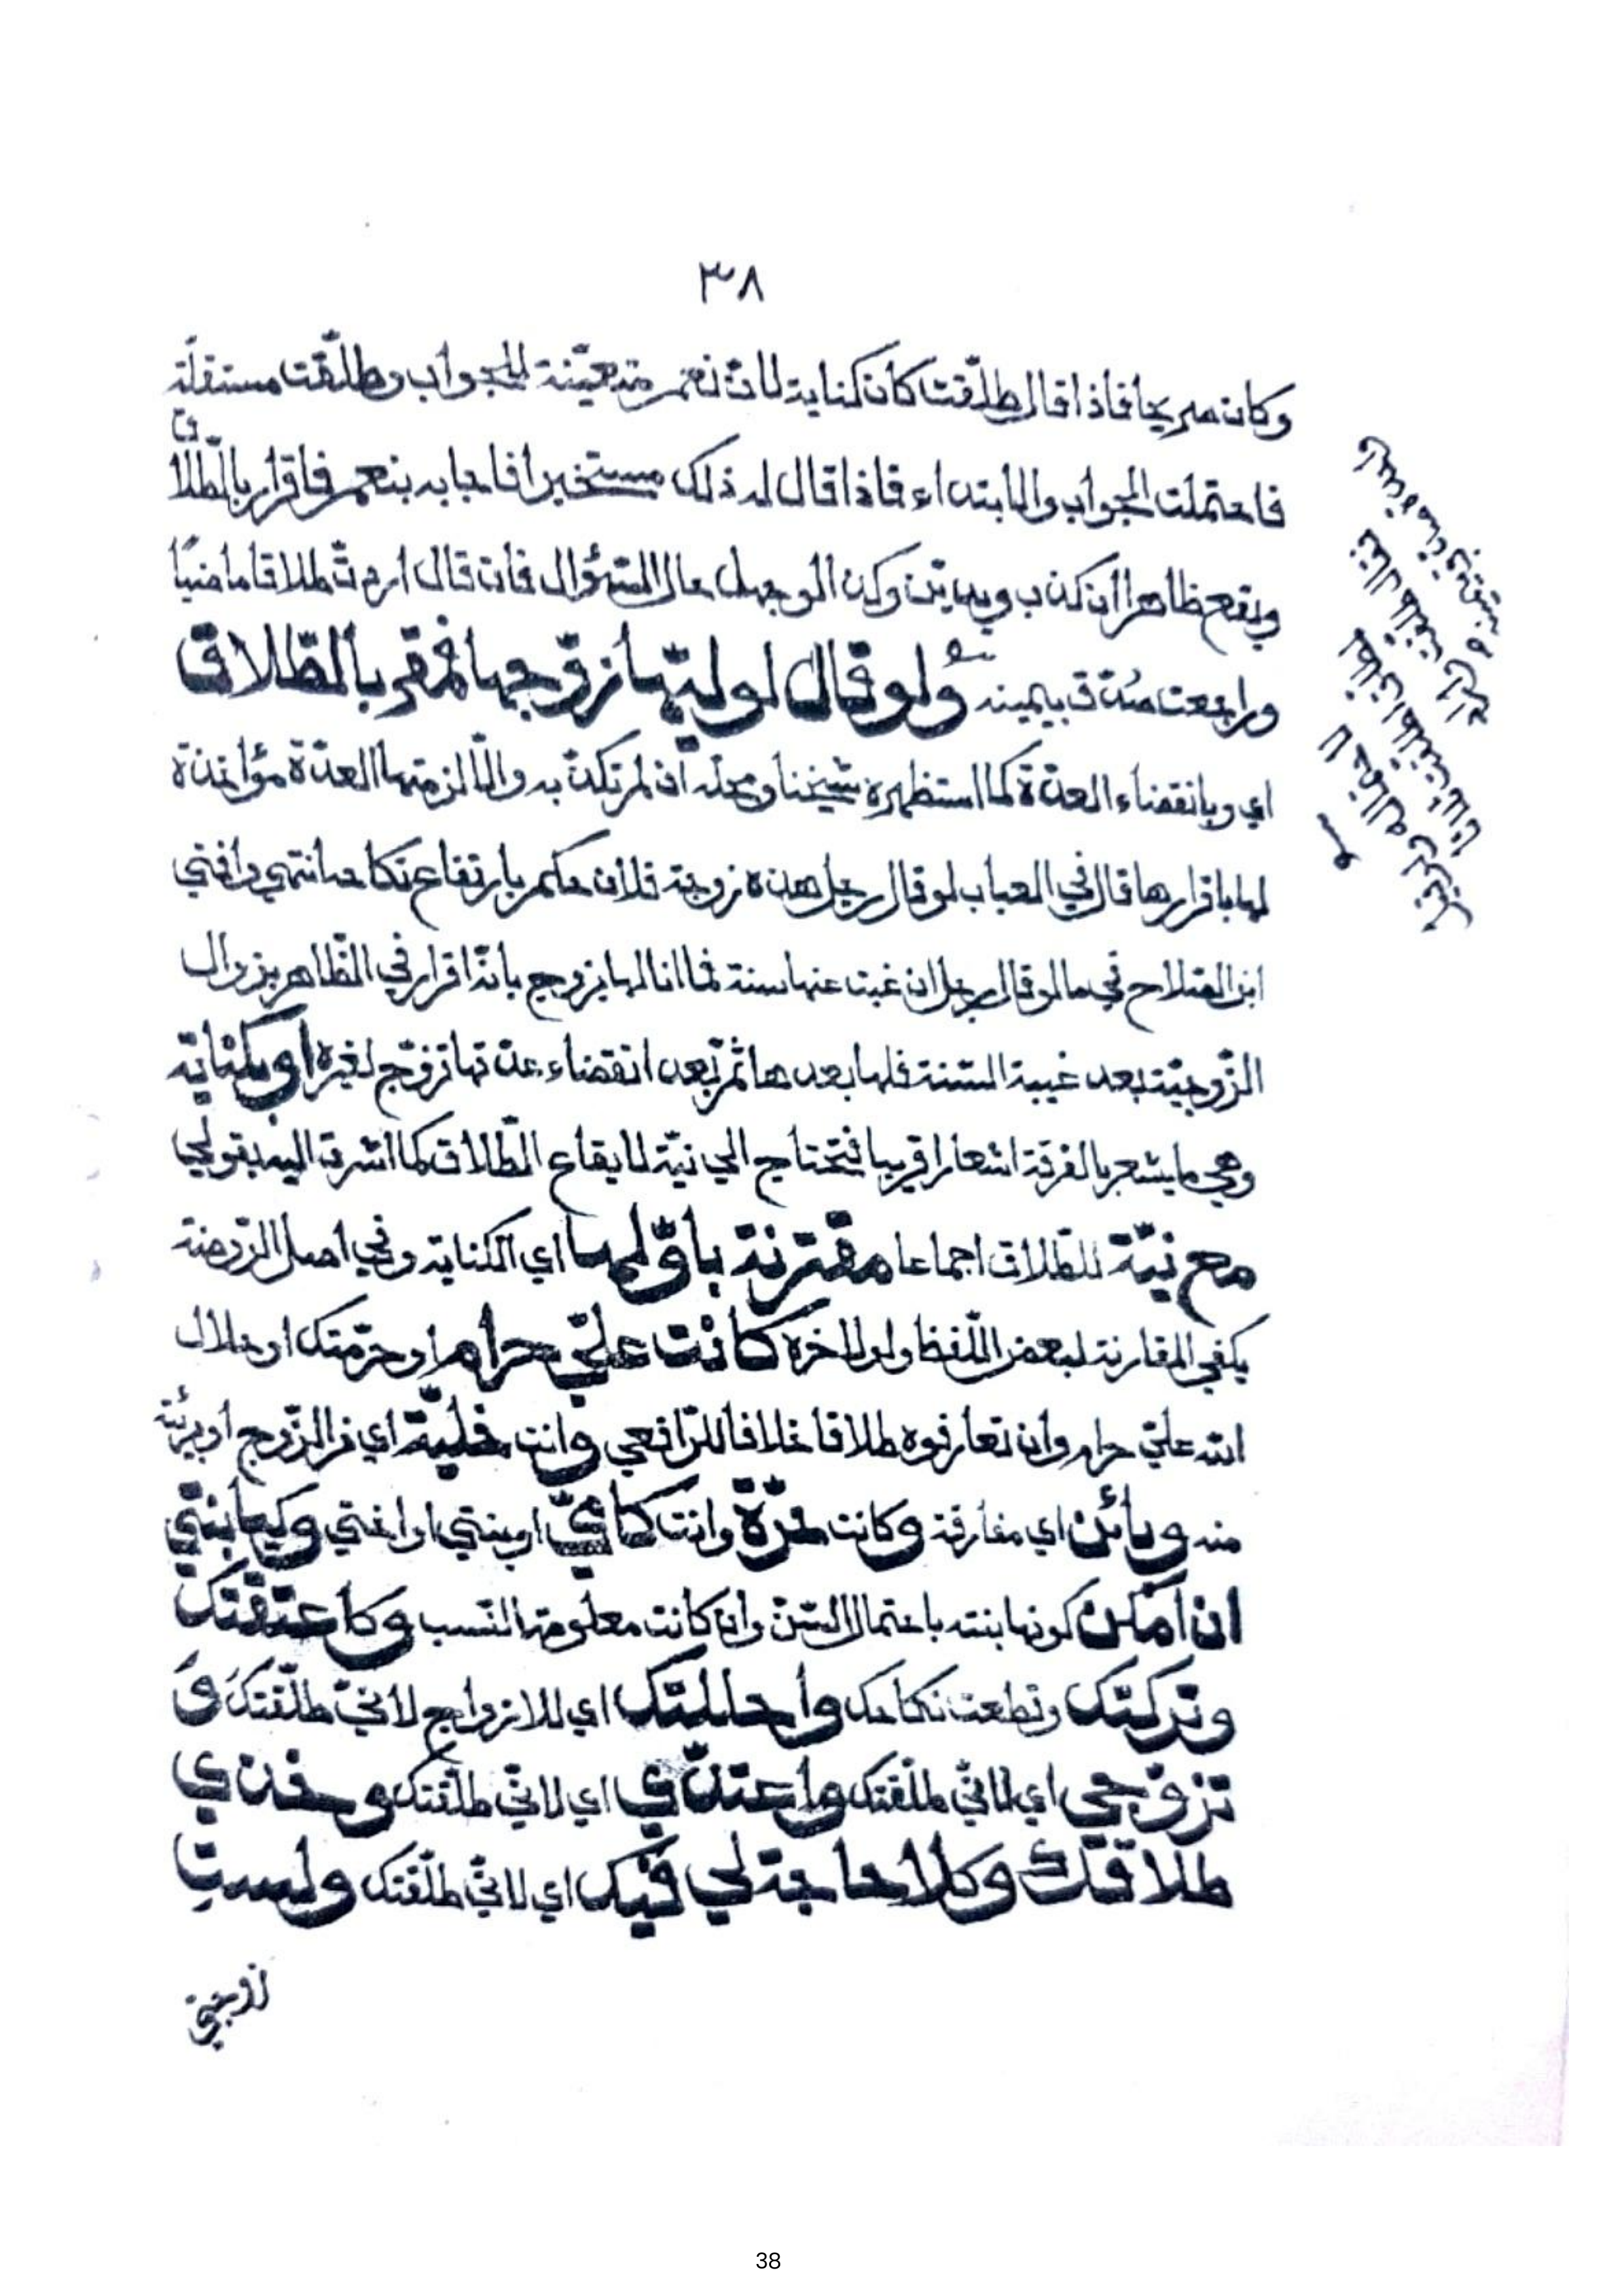 ٣٨
وكان صريحا فاذا قال طلّقت كان كناية لانّ نعم متعيّنة للجواب وطلّقت مستقلّة
فاحتملت الجواب والابتداء فاذا قال له ذلك مستخبرا فاجابه بنعم فاقرار بالطّلاق
ويقع ظاهرا ان كذب ويديّن وكذا لو جهل حال السّؤال فان قال اردتّ طلاقا ماضيًا
وراجعت صدّق بيمينه ولو قال لوليّها زوّجها فمقرّ بالطّلاق
اي وبانقضاء العدّة كما استظهره شيخنا ومحلّه ان لم تكذّبه والّا لزمتها العدّة مؤاخذة
لها باقرارها قال في العباب لو قال رجل هذه زوجة فلان حكم بارتفاع نكاحه انتهي وافتي
ابن الصّلاح في ما لو قال رجل ان غبت عنها سنة فما انا لها بزوج بانّه اقرار في الظّاهر بزوال
الزّوجيّة بعد غيبة السّنة فلها بعدها ثمّ بعد انقضاء عدّتها تزوّج لغيره او بكناية
وهي ما يشعر بالفرقة اشعارا قريبا فتحتاج الي نيّة لايقاع الطّلاق كما اشرت اليه بقولي
مع نيّة للطّلاق اجماعا مقترنة باوّلها اي الكناية وفي اصل الرّوضة
يكفي المقارنة لبعض اللّفظ ولو لاخره كانت عليّ حرام او حرّمتك او حلال
الله عليّ حرام وان تعارفوه طلاقا خلافا للرّافعي وانت خليّة اي من الزّوج او بريئة
منه وبائن اي مفارقة وكانت حرّة وانت كامّيّ او بنتي او اختي وكيا بنتي
ان امكن كونها بنته باحتمال السّنّ وان كانت معلومة النّسب وكاعتقتك
وتركتك وقطعت نكاحك واحللتك اي للازواج لانّي طلّقتك و
تزوّجي اي لانّي طلّقتك واعتدّي اي لانّي طلّقتك وخذي
طلاقك وكلا حاجة لي فيك اي لانّي طلّقتك ولست
زوجتي